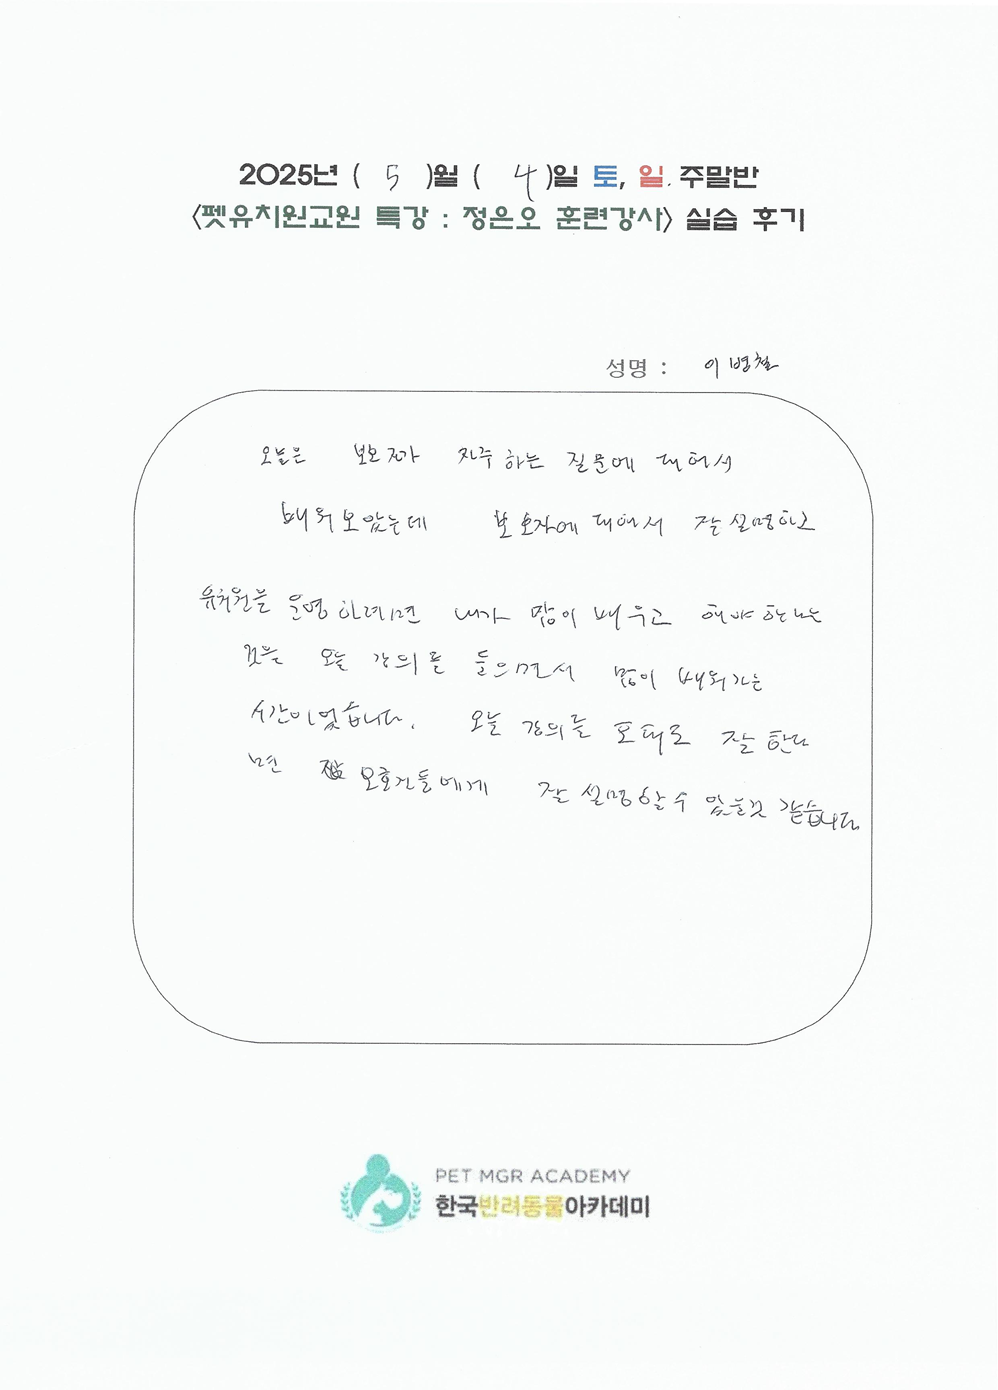 2025년 ( 5 )월 ( 4 )일 토, 일. 주말반
<펫유치원교원 특강 : 정은오 훈련강사> 실습 후기
성명 : 이병철
오늘은 보호자가 자주하는 질문에 대해서
배워보았는데 보호자에 대해서 잘 설명하고
유치원을 운영하려면 내가 많이 배우고 해야 한다는
것을 오늘 강의를 들으면서 많이 배워가는
시간이었습니다. 오늘 강의를 토대로 잘 한다
면 보호자들에게 잘 설명할 수 있을것 같습니다
PET MGR ACADEMY
한국반려동물아카데미